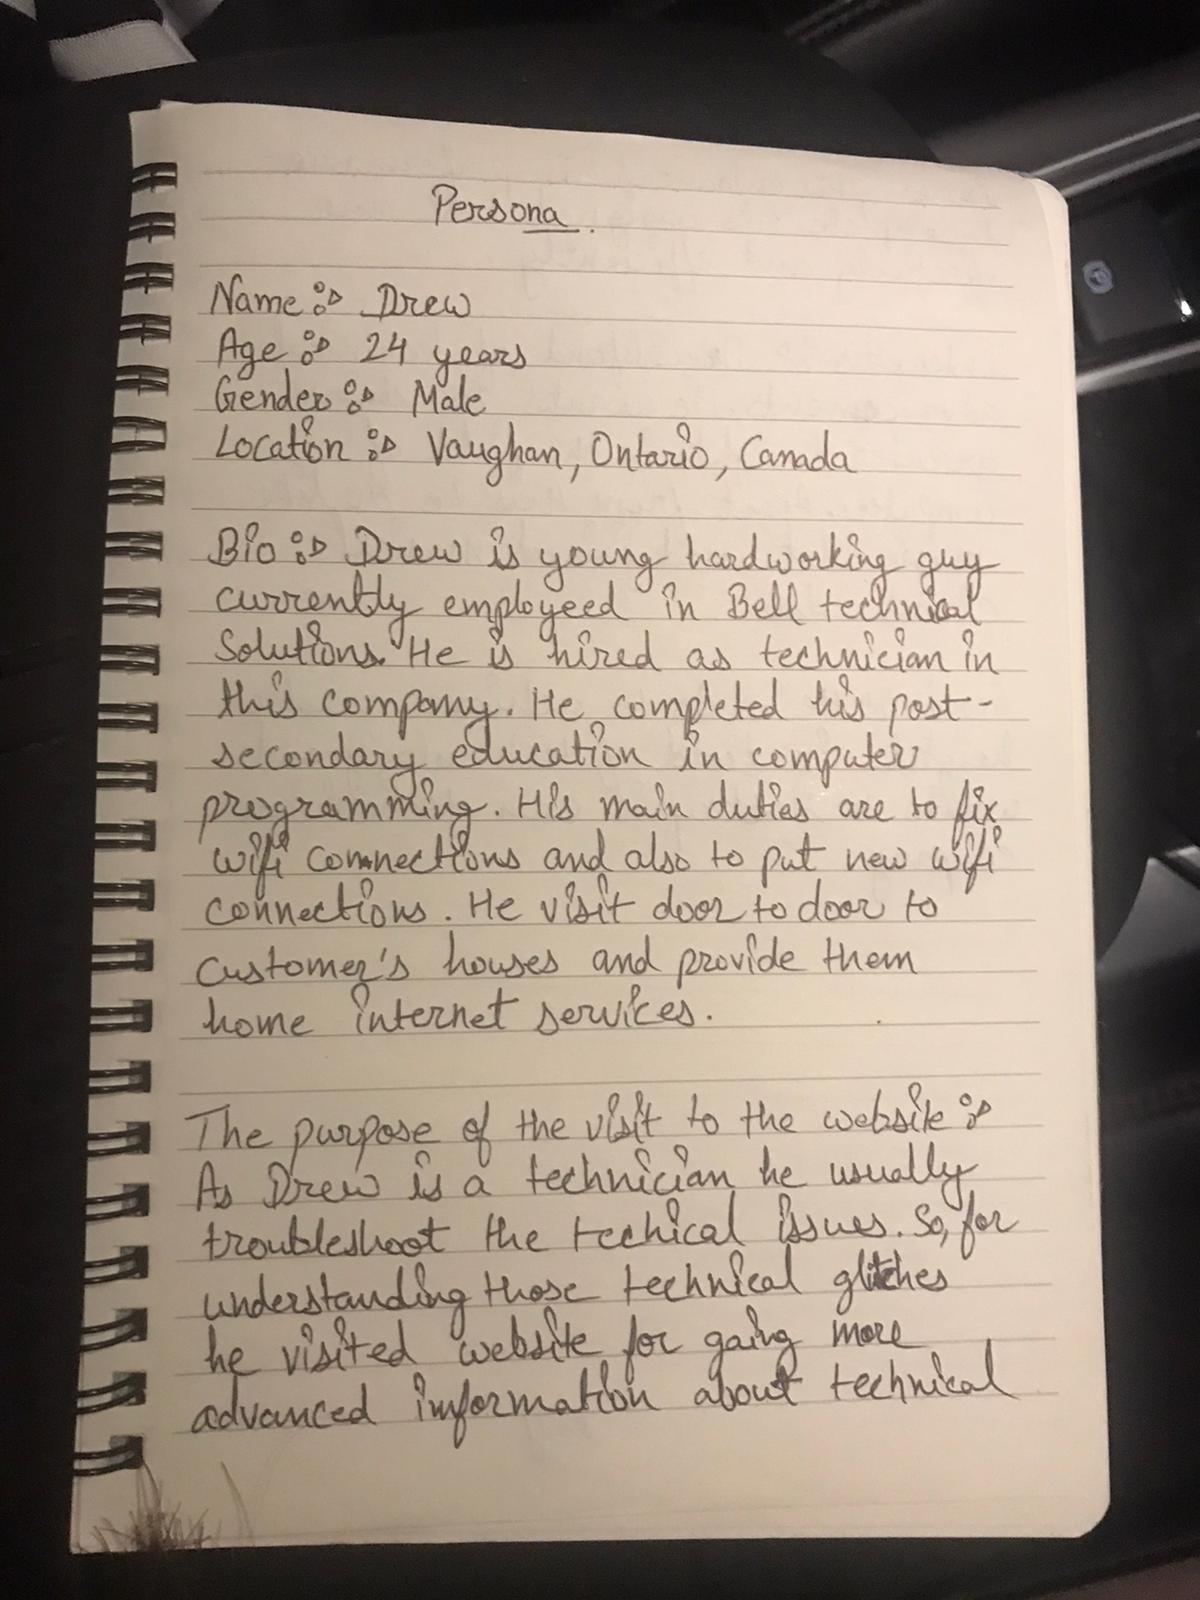 Persona.
Name :- Drew
Age :- 24 years
Gender :- Male
Location :- Vaughan, Ontario, Canada
Bio :- Drew is young hardworking guy
currently employeed in Bell technical
Solutions. He is hired as technician in
this company. He completed his post-
secondary education in computer
programming. His main duties are to fix
wifi connections and also to put new wifi
connections. He visit door to door to
customer's houses and provide them
home internet services.
The purpose of the visit to the website :-
As Drew is a technician he usually
troubleshoot the techical issues. So, for
understanding those technical glitches
he visited website for gaing more
advanced information about technical